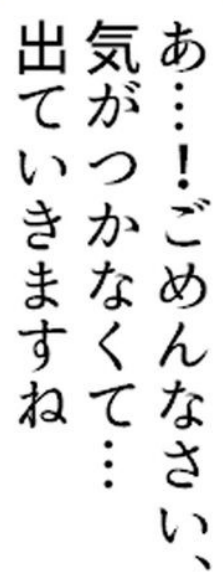 あ…！ごめんなさい、
気がつかなくて…
出ていきますね